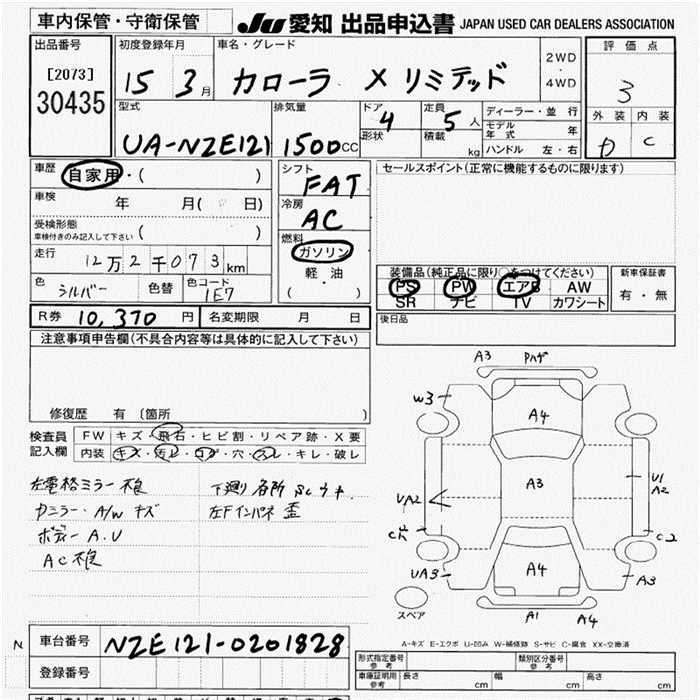 車内保管・守衛保管
JU 愛知 出品申込書 JAPAN USED CAR DEALERS ASSOCIATION
出品番号
[2073]
30435
初度登録年月
15 3月
車名・グレード
カローラ X リミテッド
2WD
・
4WD
評価点
3
外装 内装
D C
型式
UA-NZE121
排気量
1500CC
ドア
4
形状
定員
5人
積載
kg
ディーラー・並行
モデル年式 年
ハンドル 左・右
車歴
自家用・( )
車検
年 月( 日)
受検形態
車検付きのみ記入して下さい ( )
走行
12万2千073km
色
シルバー
色替
色コード
1E7
シフト
FAT
冷房
AC
燃料
ガソリン
・
軽・油
( )
セールスポイント(正常に機能するものに限ります)
装備品(純正品に限り○をつけてください)
PS PW エアB AW
SR ナビ TV カワシート
新車保証書
有・無
R券 10,370円
名変期限 月 日
後日品
注意事項申告欄(不具合内容等は具体的に記入して下さい)
修復歴 有 〔箇所 〕
検査員
記入欄
FW キズ・飛石・ヒビ割・リペア跡・X要
内装 キズ・汚レ・コゲ・穴・スレ・キレ・破レ
左電格ミラー不良
下廻り各所
カミラー・A/W キズ
左Fインパネ歪
ボディー A.U
AC不良
A3
W3
A4
A3
UA2
U1
A2
C2
UA3
A4
A3
A1
A4
スペア
A-キズ E-エクボ U-凹み W-補修跡 S-サビ C-腐食 XX-交換済
N
車台番号 NZE121-0201828
登録番号
形式指定番号
参考
類別区分番号
参考
車庫証明用
参考
長さ cm 幅 cm 高さ cm